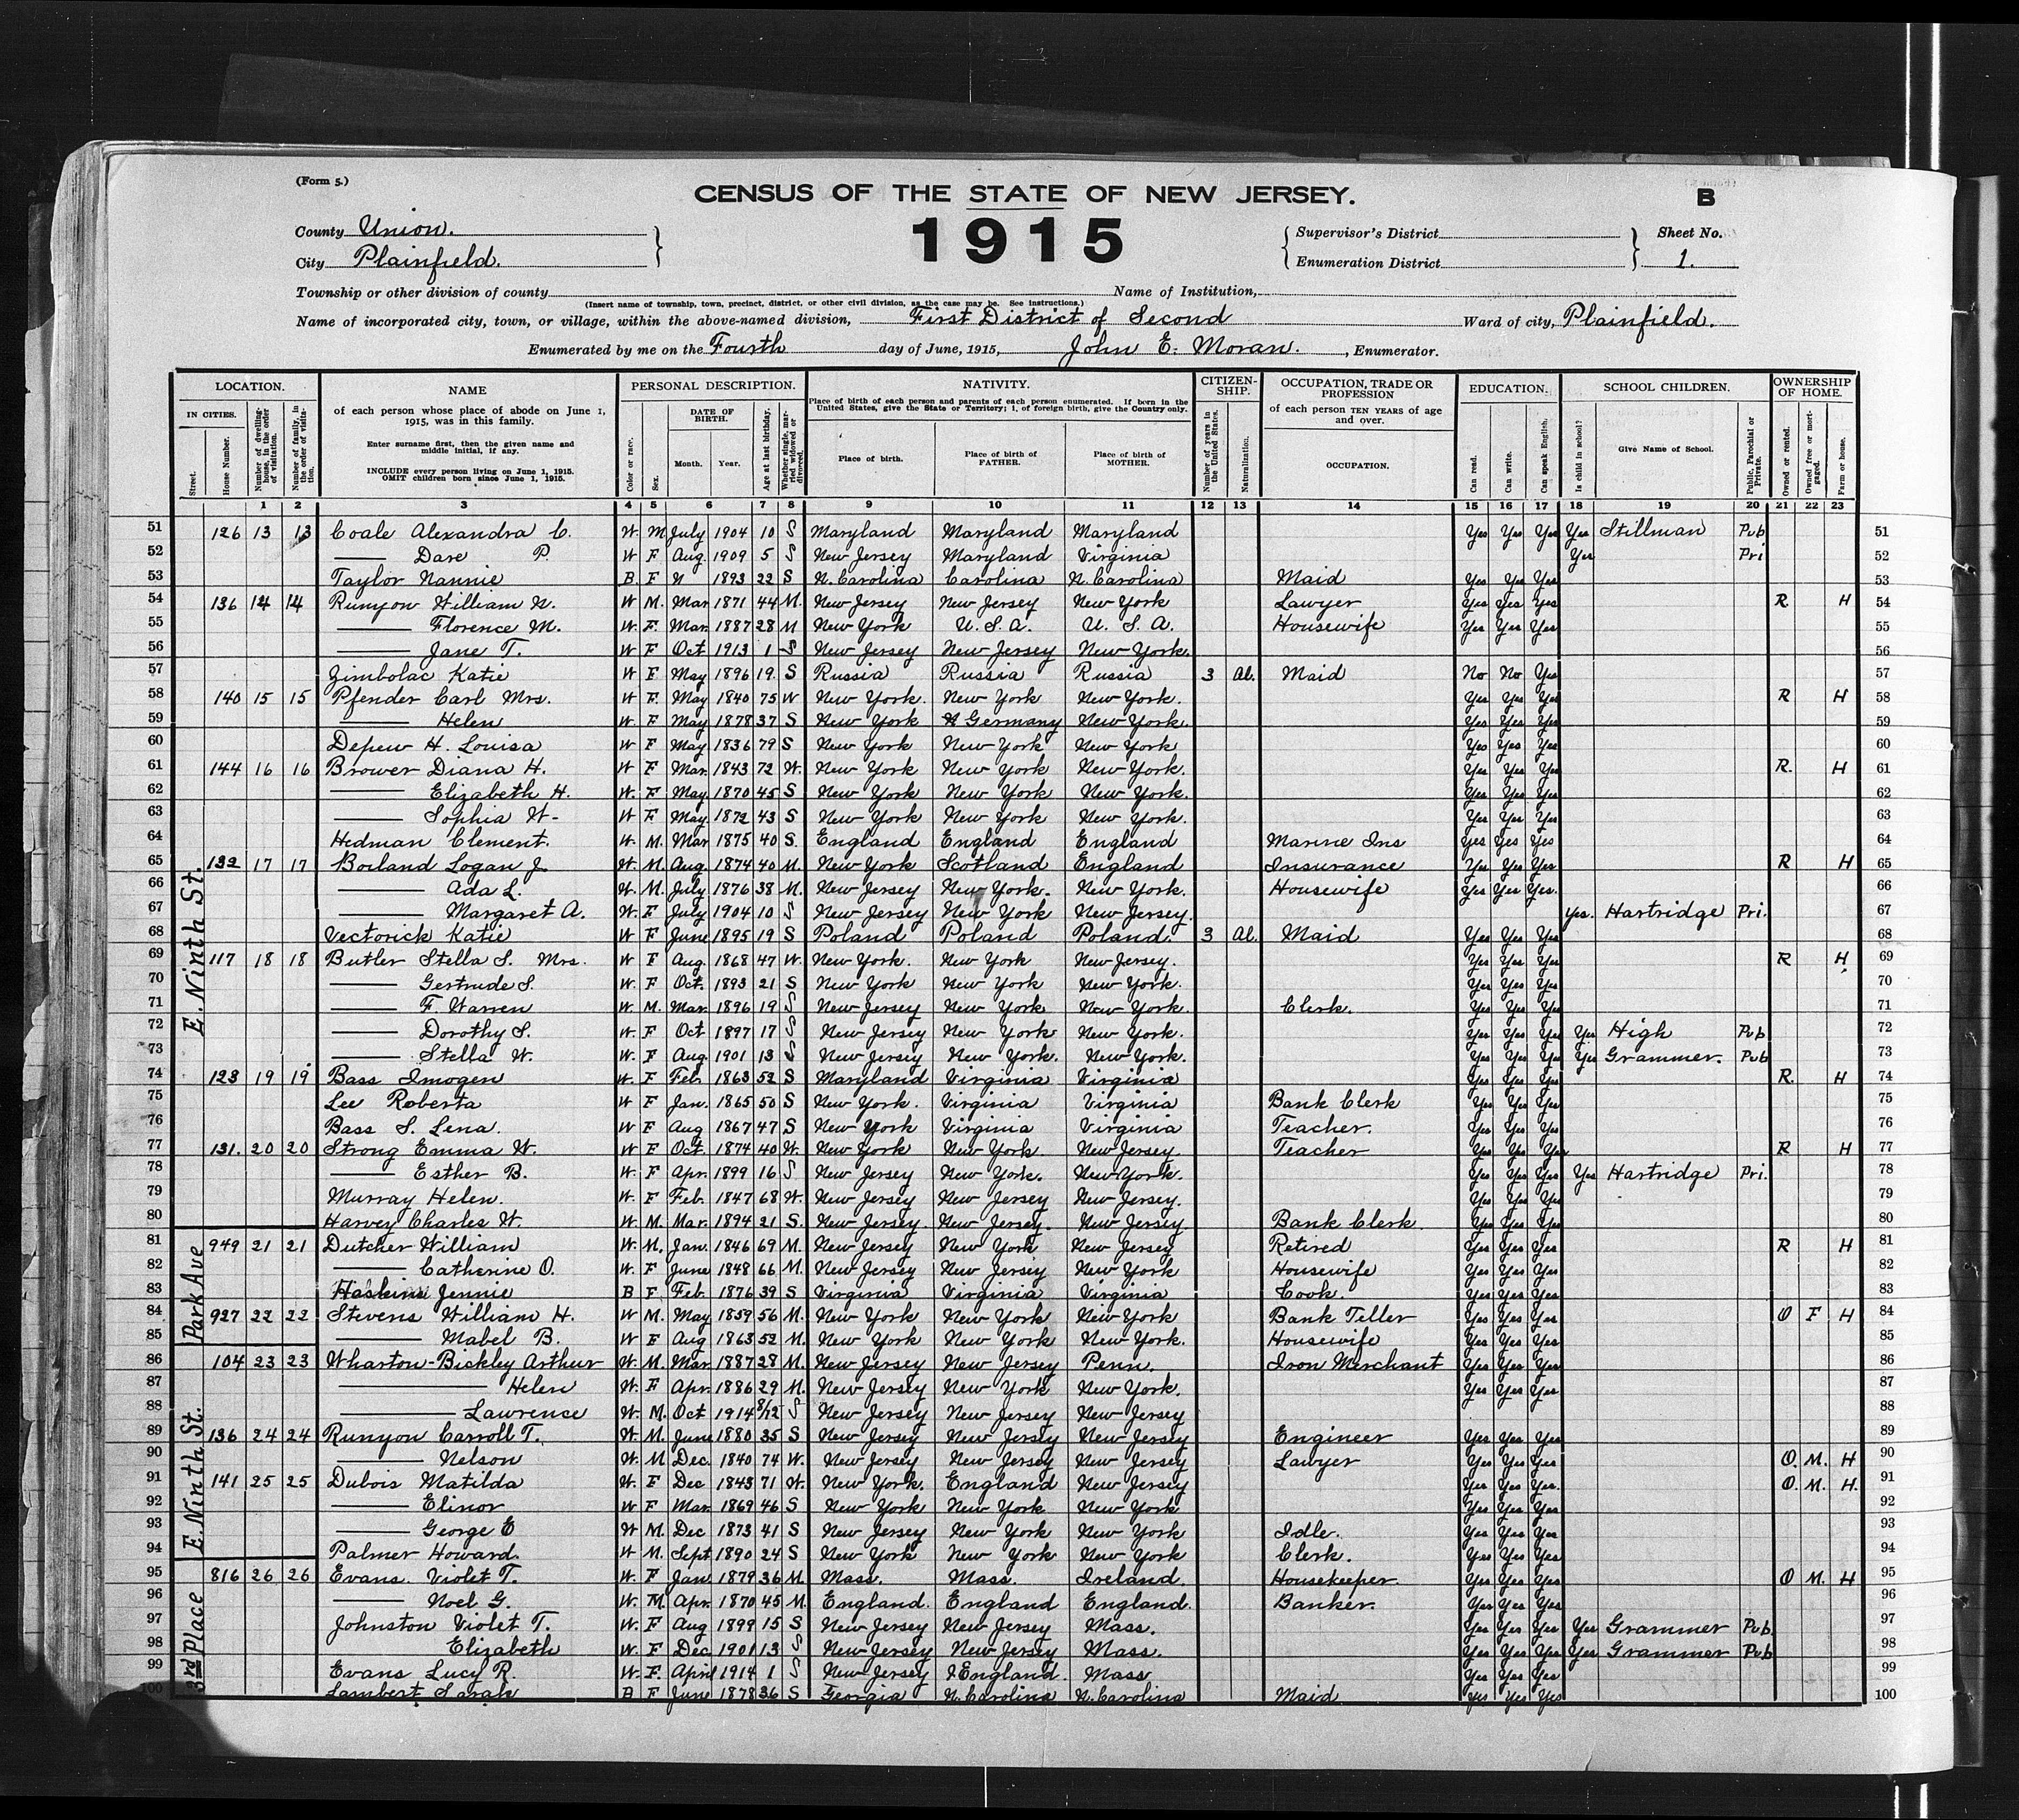 (Form 5.)
CENSUS OF THE STATE OF NEW JERSEY.
B
1915
County Union.
City Plainfield.
Supervisor's District
Enumeration District
Sheet No.
1.
Township or other division of county
Name of Institution,
(Insert name of township, town, precinct, district, or other civil division, as the case may be. See instructions.)
Name of incorporated city, town, or village, within the above-named division, First District of Second Ward of city, Plainfield.
Enumerated by me on the Fourth day of June, 1915, John E. Moran. , Enumerator.
LOCATION. NAME PERSONAL DESCRIPTION. NATIVITY. CITIZEN-SHIP. OCCUPATION, TRADE OR PROFESSION EDUCATION. SCHOOL CHILDREN. OWNERSHIP OF HOME.
IN CITIES.
Street.
House Number.
Number of dwelling-house, in the order of visitation.
Number of family, in the order of visitation.
of each person whose place of abode on June 1, 1915, was in this family.
Enter surname first, then the given name and middle initial, if any.
INCLUDE every person living on June 1, 1915.
OMIT children born since June 1, 1915.
Color or race.
Sex.
DATE OF BIRTH.
Month. Year.
Age at last birthday.
Whether single, married widowed or divorced.
Place of birth of each person and parents of each person enumerated. If born in the United States, give the State or Territory; 1, of foreign birth, give the Country only.
Place of birth.
Place of birth of FATHER.
Place of birth of MOTHER.
Number of years in the United States.
Naturalization.
of each person TEN YEARS of age and over.
OCCUPATION.
Can read.
Can write.
Can speak English.
Is child in school?
Give Name of School.
Public, Parochial or Private.
Owned or rented.
Owned free or mortgaged.
Farm or house.
1 2 3 4 5 6 7 8 9 10 11 12 13 14 15 16 17 18 19 20 21 22 23
51 126 13 13 Coale Alexandra C. W. M July 1904 10 S Maryland Maryland Maryland Yes Yes Yes Yes Stillman Pub 51
52 Dare P. W F Aug. 1909 5 S New Jersey Maryland Virginia Yes Pri 52
53 Taylor Nannie B. F N 1893 22 S N. Carolina Carolina N. Carolina Maid Yes Yes Yes 53
54 136 14 14 Runyon William N. W M. Mar 1871 44 M. New Jersey New Jersey New York Lawyer Yes Yes Yes R H 54
55 Florence M. W. F. Mar. 1887 28 M New York U. S. A. U. S. A. Housewife Yes Yes Yes 55
56 Jane T. W F Oct 1913 1 S New Jersey New Jersey New York. 56
57 Zimbolac Katie W F May 1896 19. S Russia Russia Russia 3 Al. Maid No No Yes 57
58 140 15 15 Pfender Carl Mrs. W F. May 1840 75 W New York. New York New York. Yes Yes Yes R H 58
59 Helen W F May 1878 37 S New York Germany New York. Yes Yes Yes 59
60 Depew H. Louisa W F May 1836 79 S New York New York New York Yes Yes Yes 60
61 144 16 16 Brower Diana H. W F Mar. 1843 72 W. New York New York New York. Yes Yes Yes R. H 61
62 Elizabeth H. W. F. May. 1870 45 S New York New York New York. Yes Yes Yes 62
63 Sophia W- W F May 1872 43 S New York New York New York. Yes Yes Yes 63
64 Hedman Clement. W. M. Mar 1875 40 S. England England England Marine Ins Yes Yes Yes 64
65 132 17 17 Borland Logan J. W. M. Aug. 1874 40 M. New York Scotland England Insurance Yes Yes Yes R H 65
66 Ada L. W. M. July 1876 38 M. New Jersey New York. New York. Housewife Yes Yes Yes. 66
67 Margaret A. W. F July 1904 10 S New Jersey New York New Jersey. Yes. Hartridge Pri. 67
68 Vectorick Katie W F June 1895 19 S Poland Poland Poland. 3 Al. Maid Yes Yes Yes 68
E. Ninth St.
69 117 18 18 Butler Stella S. Mrs. W F Aug. 1868 47 W. New York. New York New Jersey. Yes Yes Yes R H 69
70 Gertrude S. W. F Oct. 1893 21 S New York New York New York. Yes Yes Yes 70
71 F. Warren W. M. Mar. 1896 19 S New Jersey New York New York. Clerk. Yes Yes Yes 71
72 Dorothy S. W. F Oct 1897 17 S New Jersey New York New York. Yes Yes Yes Yes High Pub 72
73 Stella W. W. F Aug. 1901 13 S New Jersey New York. New York. Yes Yes Yes Yes Grammer. Pub 73
74 123 19 19 Bass Imogen W. F Feb. 1863 52 S Maryland Virginia Virginia Yes Yes Yes R. H 74
75 Lee Roberta W F Jan. 1865 50 S New York. Virginia Virginia Bank Clerk Yes Yes Yes 75
76 Bass S. Lena. W F Aug 1867 47 S New York Virginia Virginia Teacher. Yes Yes Yes 76
77 131. 20 20 Strong Emma W. W F Oct. 1874 40 W. New York New York New Jersey. Teacher Yes Yes Yes R H 77
78 Esther B. W. F Apr. 1899 16 S New Jersey New York. New York. Yes Yes Yes Yes Hartridge Pri. 78
79 Murray Helen. W. F Feb. 1847 68 W. New Jersey New Jersey New Jersey. Yes Yes Yes 79
80 Harvey Charles W. W M. Mar. 1894 21 S. New Jersey. New Jersey. New Jersey Bank Clerk Yes Yes Yes 80
Park Ave
81 949 21 21 Dutcher William W. M. Jan. 1846 69 M. New Jersey New York New Jersey Retired Yes Yes Yes R H 81
82 Catherine O. W. F June 1848 66 M. New Jersey New Jersey New York Housewife Yes Yes Yes 82
83 Haskins Jennie B F Feb. 1876 39 S Virginia Virginia Virginia Cook. Yes Yes Yes 83
84 927 22 22 Stevens William H. W M. May 1859 56 M. New York New York New York Bank Teller Yes Yes Yes O F H 84
85 Mabel B. W F Aug 1863 52 M. New York New York New York. Housewife Yes Yes Yes 85
E. Ninth St.
86 104 23 23 Wharton-Bickley Arthur W. M. Mar. 1887 28 M. New Jersey New Jersey Penn. Iron Merchant Yes Yes Yes 86
87 Helen W. F Apr. 1886 29 M. New Jersey New York New York. Yes Yes Yes 87
88 Lawrence W. M. Oct 1914 8/12 S New Jersey New Jersey New Jersey 88
89 136 24 24 Runyon Carroll T. W. M. June 1880 35 S New Jersey New Jersey New Jersey Engineer Yes Yes Yes 89
90 Nelson W. M Dec. 1840 74 W. New Jersey New Jersey New Jersey Lawyer Yes Yes Yes O. M. H 90
91 141 25 25 Dubois Matilda W. F Dec 1843 71 W. New York. England New Jersey Yes Yes Yes. O. M. H. 91
92 Elinor W F Mar. 1869 46 S New York New York New York Yes Yes Yes 92
93 George E W M. Dec 1873 41 S New Jersey New York New York Idle. Yes Yes Yes 93
94 Palmer Howard. W M. Sept 1890 24 S New York New York New York Clerk. Yes Yes Yes 94
3rd Place
95 816 26 26 Evans. Violet T. W. F. Jan. 1879 36 M. Mass. Mass. Ireland. Housekeeper. Yes Yes Yes O M. H 95
96 Noel G. W. M. Apr. 1870 45 M. England. England England. Banker. Yes Yes Yes 96
97 Johnston Violet T. W. F Aug 1899 15 S New Jersey New Jersey Mass. Yes Yes Yes Yes Grammer Pub. 97
98 Elizabeth W. F Dec. 1901 13 S New Jersey New Jersey Mass. Yes Yes Yes Yes Grammer Pub 98
99 Evans Lucy R. W. F. April 1914 1 S New Jersey England. Mass Yes Yes Yes 99
100 Lambert Sarah B F June 1878 36 S Georgia N. Carolina N. Carolina Maid Yes Yes Yes 100